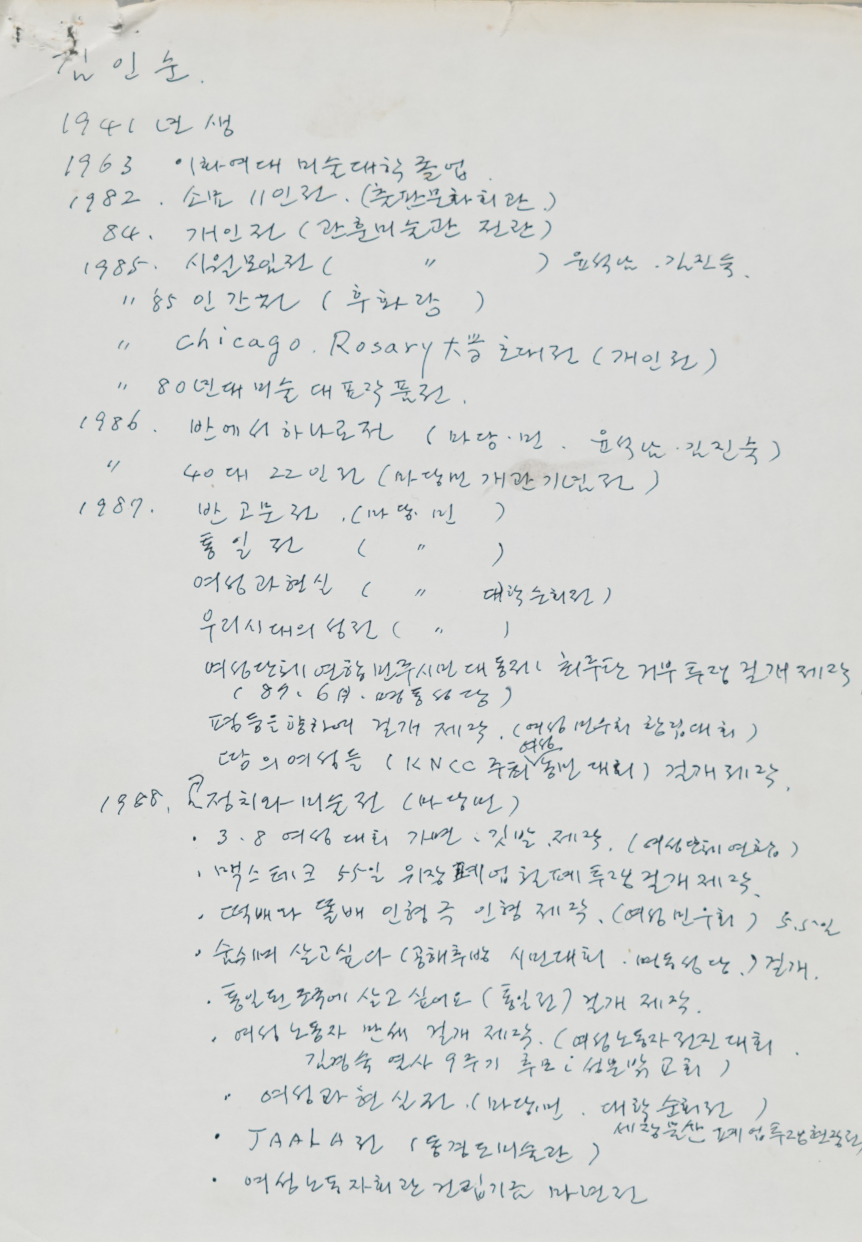 김인순.
1941년생
1963 이화여대 미술대학 졸업.
1982. 소묘 11인전. (출판문화회관.)
84. 개인전 (관훈미술관 전관)
1985. 시월모임전 ( 〃 ) 윤석남. 김진숙.
〃 85 인간전 ( 후화랑 )
〃 Chicago. Rosary 大学 초대전 (개인전)
〃 80년대 미술 대표작품전.
1986. 반에서 하나로전 (마당.민. 윤석남.김진숙)
〃 40대 22인전 (마당민 개관기념전)
1987. 반고문전. (마당.민 )
통일전 ( 〃 )
여성과 현실 ( 〃 대학순회전)
우리시대의 성전 ( 〃 )
여성단체 연합 민주시민 대동제; 최루탄 거부 투쟁 걸개 제작
( 87. 6月. 명동성당)
평등을 향하여 걸개 제작. (여성민우회 창립대회)
땅의 여성들 (KNCC 주최 여성 농민 대회) 걸개 제작.
1988. 정치와 미술전 (마당민)
· 3.8 여성대회 가면. 깃발. 제작. (여성단체연합)
· 맥스테크 55일 위장폐업 철폐투쟁 걸개 제작.
· 떡배와 똘배 인형극 인형 제작. (여성민우회) 5.5일
· 숨쉬며 살고싶다 (공해추방 시민대회. 명동성당.) 걸개.
· 통일된 조국에 살고 싶어요 (통일전) 걸개 제작.
· 여성노동자 만세 걸개 제작. (여성노동자전진대회.
김경숙 열사 9주기 추모; 성문밖 교회 )
· 여성과 현실전. (마당.민. 대학 순회전 )
세창물산 폐업투쟁현장전
· JAALA전 (동경도미술관 )
· 여성노동자회관 건립기금 마련전